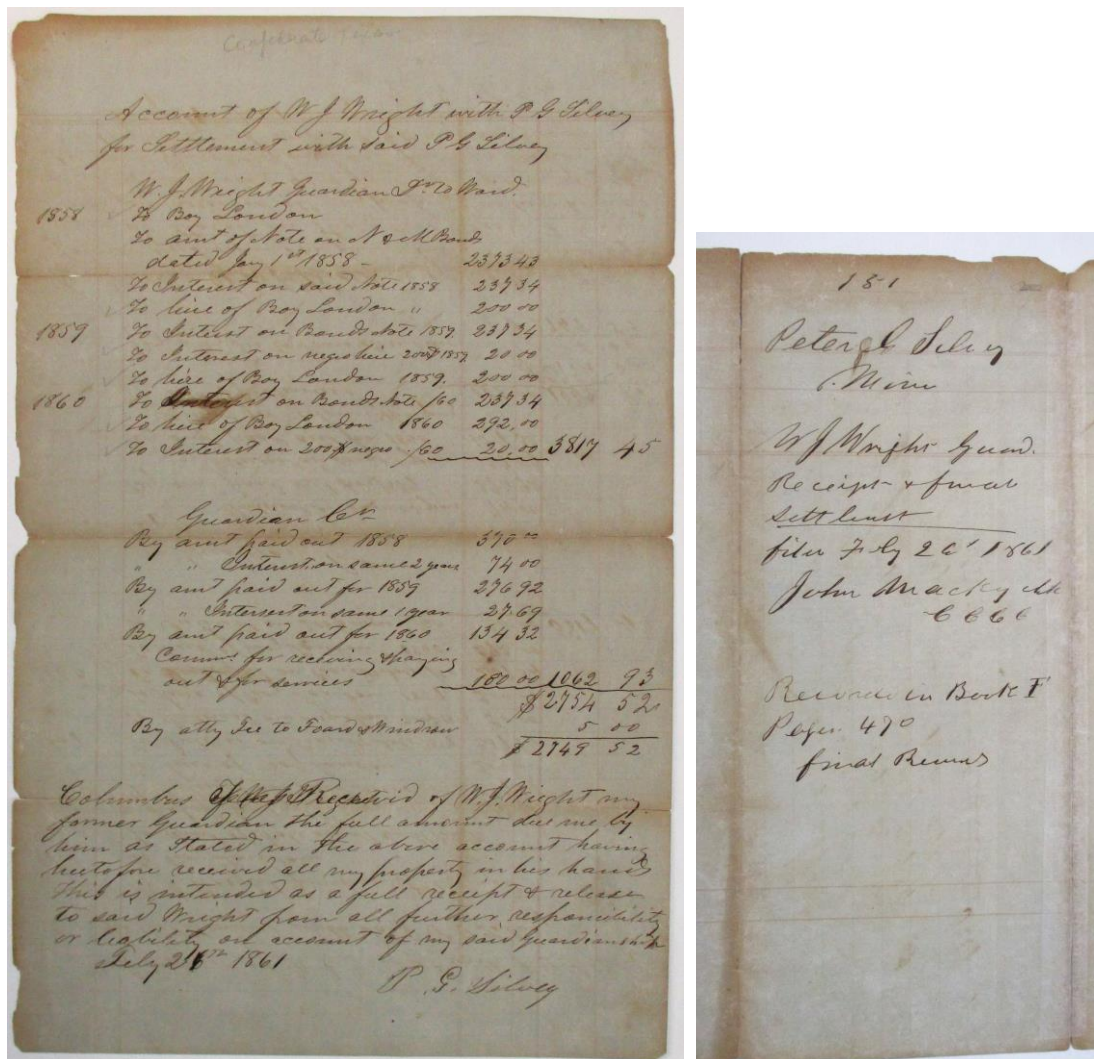 Confederate Texas
Account of W J Wright with P G Silvey
for Settlement with said P G Silvey
W. J. Wright Guardian Dr to Ward.
1858 To Boy London
To amt of Note on N & M Bonds
dated Jany 1st 1858 - 2373 43
To Interest on said Note 1858 237 34
To hire of Boy London " 200 00
1859 To Interest on Bonds Note 1859. 237 34
To Interest on negro hire 200$ 1859. 20.00
To hire of Boy London 1859. 200 00
1860 To Interest on Bonds Note /60 237 34
To hire of Boy London 1860 292,00
To Interest on 200$ negro /60 20,00 3817 45
Guardian Cr
By amt paid out 1858 370 00
" " Interest on same 2 years 74 00
By amt paid out for 1859 276 92
" " Interest on same 1 year 27.69
By amt paid out for 1860 134 32
Comms for receiving & paying
out & for services 180 00 1062 93
$2754 52
By atty Fee to Foard & 5 00
$2749 52
Columbus Received of W. J. Wright my
former Guardian the full amount due me by
him as Stated in the above account having
heretofore received all my property in his hands
this is intended as a full receipt & release
to said Wright from all further responcibility
or liability on account of my said Guardianship
26th 1861
P. G. Silvey
181
Peter G Silvey
Minor
W J Wright Guard.
Receipt & final
Settlemt
26 1861
John Mackey clk
C C C C
Recorded in Book F
Pages 470
final